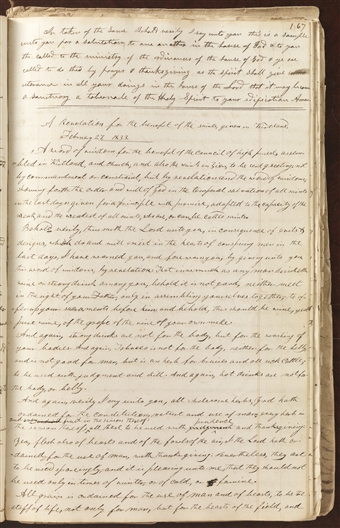 167
the token of the same Behold verily I say unto you this is a sample
unto you for a salutation to one another in the house of God & ye are
called to do this by prayer & thanksgiving as the spirit shall give
utterance in all your doings in the house of the Lord that it may become
a sanctuary a tabernacle of the Holy Spirit to your edification Amen
A Revelation for the benefit of the saints given in Kirtland
February 27 1833
A word of wisdom for the benefit of the council of high priests assem
bled in Kirtland and church; and also the saints in Zion; to be sent greeting not
by commandment or constraint, but by revelation and the word of wisdom
showing forth the order and will of God in the temporal salvation of all saints
in the last days, given for a principle with promise, adapted to the capacity of the
weak and the weakest of all saints, who are or can be called saints
Behold verily, thus saith the Lord unto you, in consequence of evils &
designs, which do and will exist in the hearts of conspiring men in the
last days, I have warned you, and forewarn you, by giving unto you
this word of wisdom, by revelation that inasmuch as any man drinketh
wine or strong drink among you, behold it is not good, neither meet
in the sight of your Father, only in assembling yourselves together, to of
fer up your sacraments before him and behold, this should be wine, yea
pure wine, of the grape of the vine of your own make
And again, strong drinks are not for the body, but for the washing of
your bodies. And again Tobacco is not for the body, neither for the belly
and is not good for man, but is an herb for bruises and all sick cattle,
to be used with judgment and skill. And again, hot drinks are not for
the body or belly.
And again, verily I say unto you, all wholesome herbs God hath
ordained for the constitution, nature and use of man, every herb in
the season thereof, all these to be used with prudence and thanksgiving
Yea, flesh also of beasts and of the fowls of the air, I the Lord hath or
dained for the use of man, with thanksgiving. nevertheless, they are
to be used sparingly; and it is pleasing unto me, that they should not
be used only in times of winter or of cold, or famine.
All grain is ordained for the use of man and of beasts, to be the
staff of life, not only for man, but for the beasts of the field, and